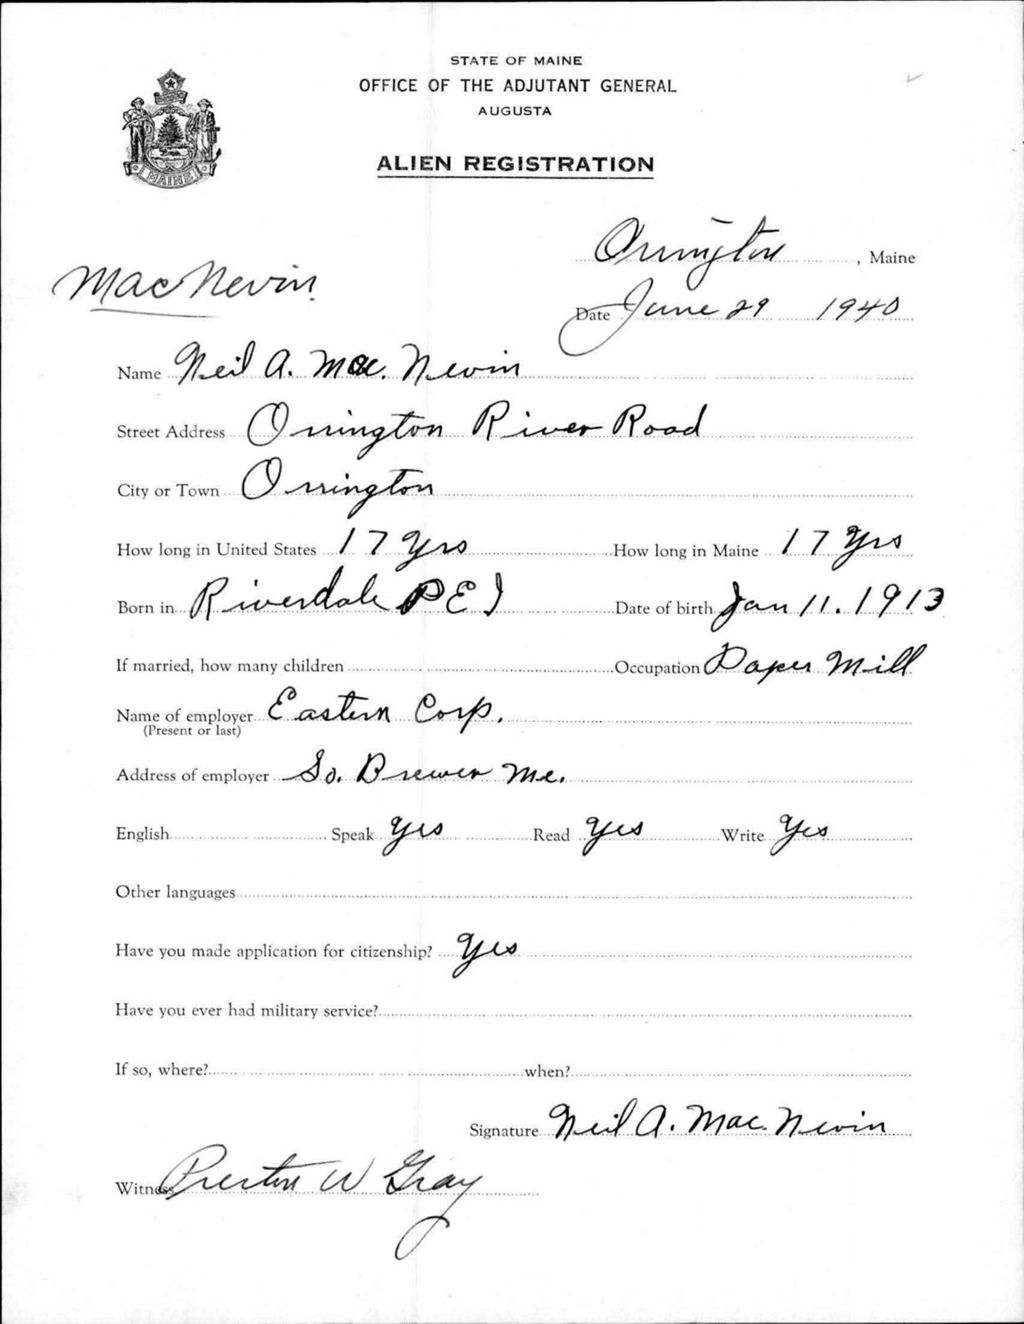 STATE OF MAINE
OFFICE OF THE ADJUTANT GENERAL
AUGUSTA
ALIEN REGISTRATION
MAINE
Orrington, Maine
MacNevin
Date June 29 1940
Name Neil A. Mac. Nevin
Street Address Orrington River Road
City or Town Orrington
How long in United States 17 Yrs How long in Maine 17 Yrs
Born in Riverdale P E I Date of birth Jan 11. 1913
If married, how many children Occupation Paper Mill
Name of employer Eastern Corp.
(Present or last)
Address of employer So. Brewer Me.
English Speak Yes Read Yes Write Yes
Other languages
Have you made application for citizenship? Yes
Have you ever had military service?
If so, where? when?
Signature Neil A. Mac. Nevin
Witness Preston W Gray